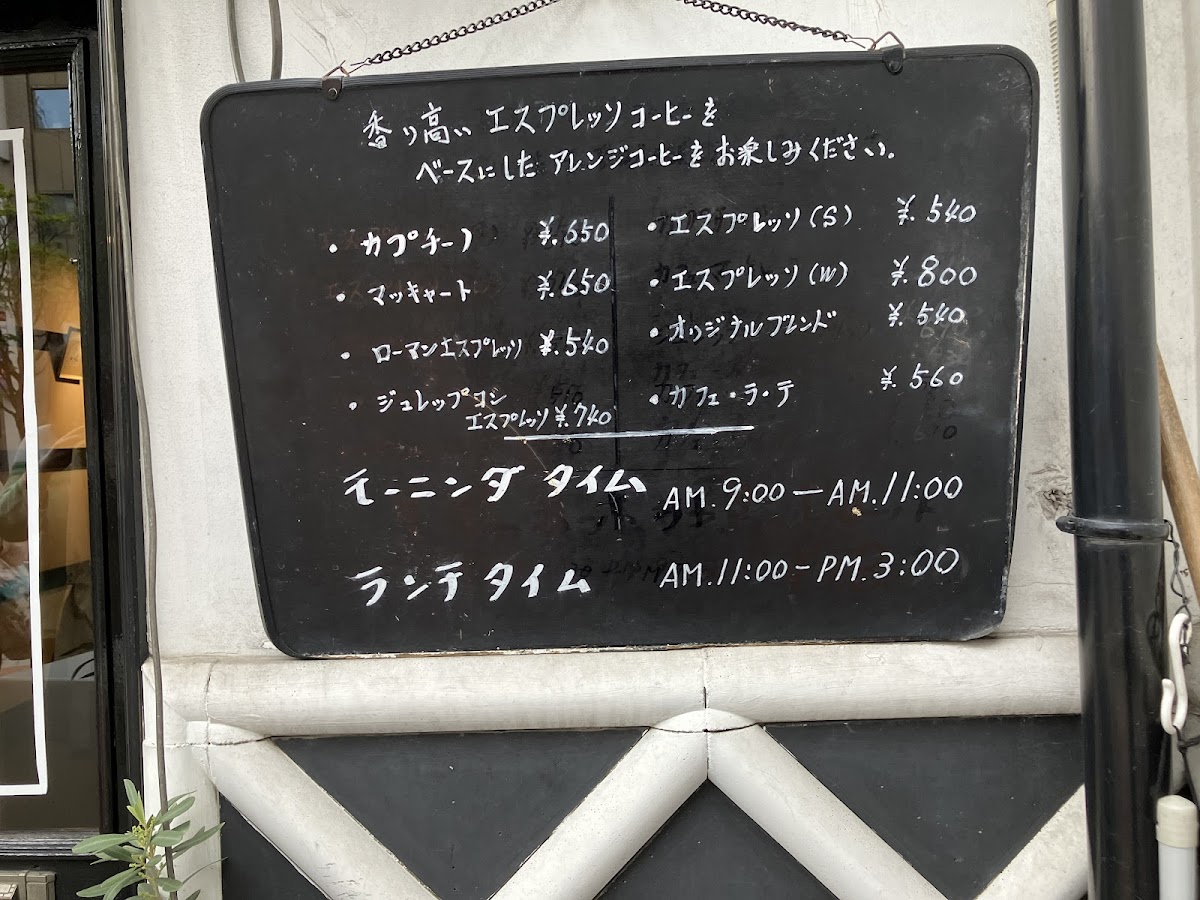 香り高い エスプレッソコーヒーを
ベースにした アレンジコーヒーを お楽しみください。
・カプチーノ ¥.650
・マッキャート ¥.650
・ローマンエスプレッソ ¥.540
・ジュレップコン
エスプレッソ ¥.740
・エスプレッソ(S) ¥.540
・エスプレッソ(W) ¥.800
・オリジナルブレンド ¥.540
・カフェ・ラ・テ ¥.560
モーニング タイム AM.9:00-AM.11:00
ランチ タイム AM.11:00-PM.3:00